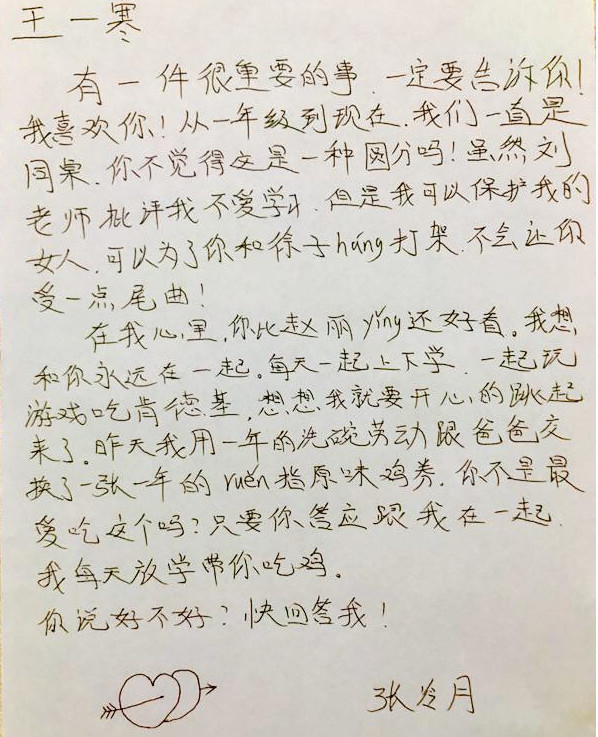 王一寒
有一件很重要的事，一定要告诉你！
我喜欢你！从一年级到现在，我们一直是
同桌，你不觉得这是一种园分吗！虽然刘
老师批评我不爱学习，但是我可以保护我的
女人，可以为了你和徐子háng打架，不会让你
受一点尾曲！
在我心里，你比赵丽yǐng还好看。我想
和你永远在一起。每天一起上下学，一起玩
游戏吃肯德基，想想我就要开心的跳起
来了。昨天我用一年的洗碗劳动跟爸爸交
换了一张一年的ruěn指原味鸡券，你不是最
爱吃这个吗？只要你答应跟我在一起，
我每天放学带你吃鸡。
你说好不好？快回答我！
张冷月